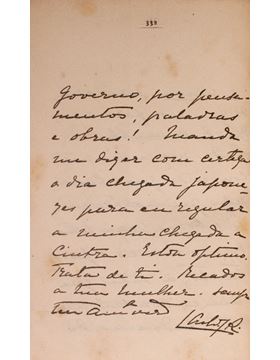 338
Governo, por pensa-
mentos, palavras
e obras! Manda
me dizer com certeza
o dia chegada japone-
zes para eu regular
a minha chegada a
Cintra. Estou optimo.
Trata de ti. Recados
a tua mulher. Sempre
teu am.º ver.º
Carlos R.